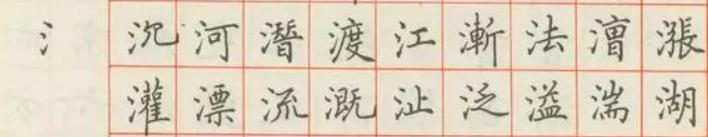 氵 沉 河 潛 渡 江 漸 法 漕 漲
灌 漂 流 溉 沚 泛 溢 湍 湖